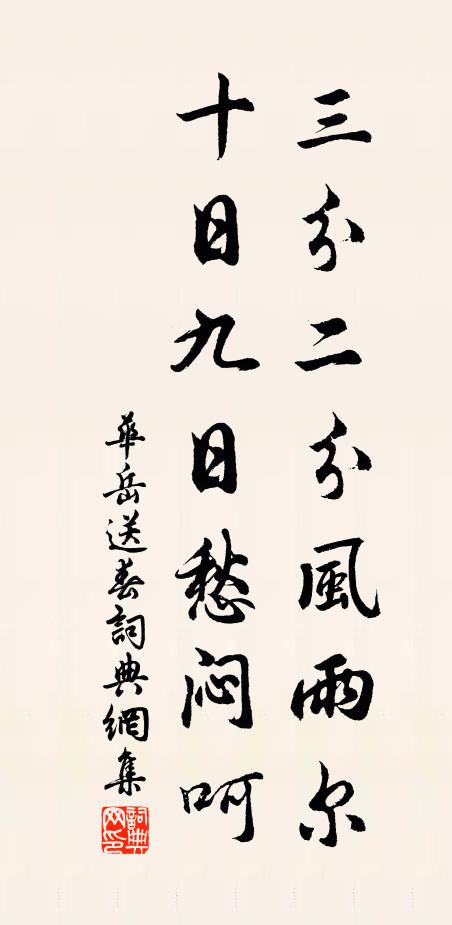 三分二分風雨尔
十日九日愁闷呵
華岳送春詞典網集
詞典网印